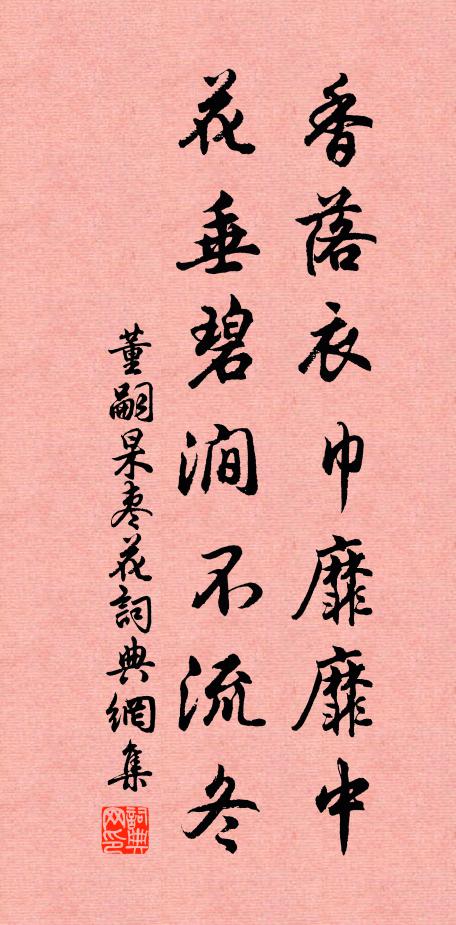 香落衣巾靡靡中
花垂碧涧不流冬
董嗣杲枣花詞典網集
詞典网印